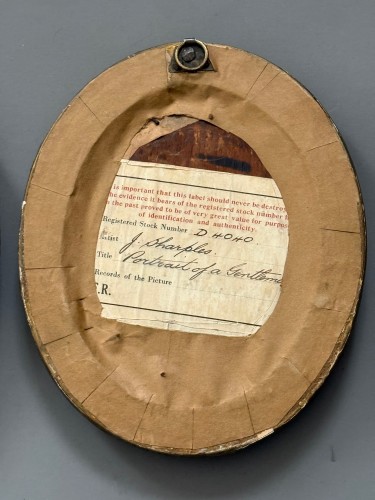 is important that this label should never be destroy
he evidence it bears of the registered stock number h
the past proved to be of very great value for purpos
of identification and authenticity.
Registered Stock Number D 4040
Artist J. Sharples.
Title Portrait of a Gentlema
Records of the Picture
F.R.